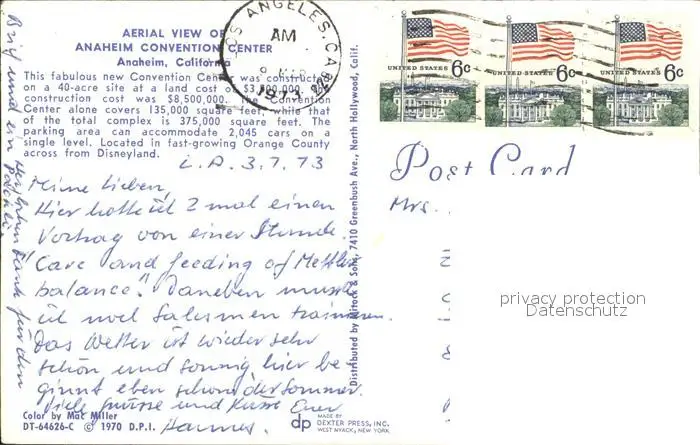 AERIAL VIEW OF
ANAHEIM CONVENTION CENTER
Anaheim, California
This fabulous new Convention Center was constructed
on a 40-acre site at a land cost of
construction cost was $8,500,000. The Convention
Center alone covers 135,000 square feet, while that
of the total complex is 375,000 square feet. The
parking area can accommodate 2,045 cars on a
single level. Located in fast-growing Orange County
across from Disneyland.
L.A. 3.7.73
Meine Lieben,
Hier hatte ich 2 mal einen
Vortrag von einer Stunde.
"Care and feeding of Mettler
balance." Daneben musste
ich noch Salesmen trainieren.
Das Wetter ist wieder sehr
schön und sonnig, hier be-
ginnt eben schon der Sommer.
Viele Grüsse und Küsse Euer
Hannes.
Brief und ein
herzlichen Dank für den
Color by Mac Miller
DT-64626-C © 1970 D.P.I.
Distributed by Mitock & Sons, 7410 Greenbush Ave., North Hollywood, Calif.
dp
MADE BY
DEXTER PRESS, INC.
WEST NYACK, NEW YORK
LOS ANGELES, CA
AM
9
1973
UNITED STATES 6c
UNITED STATES 6c
UNITED STATES 6c
Post Card
Mrs.
privacy protection
Datenschutz